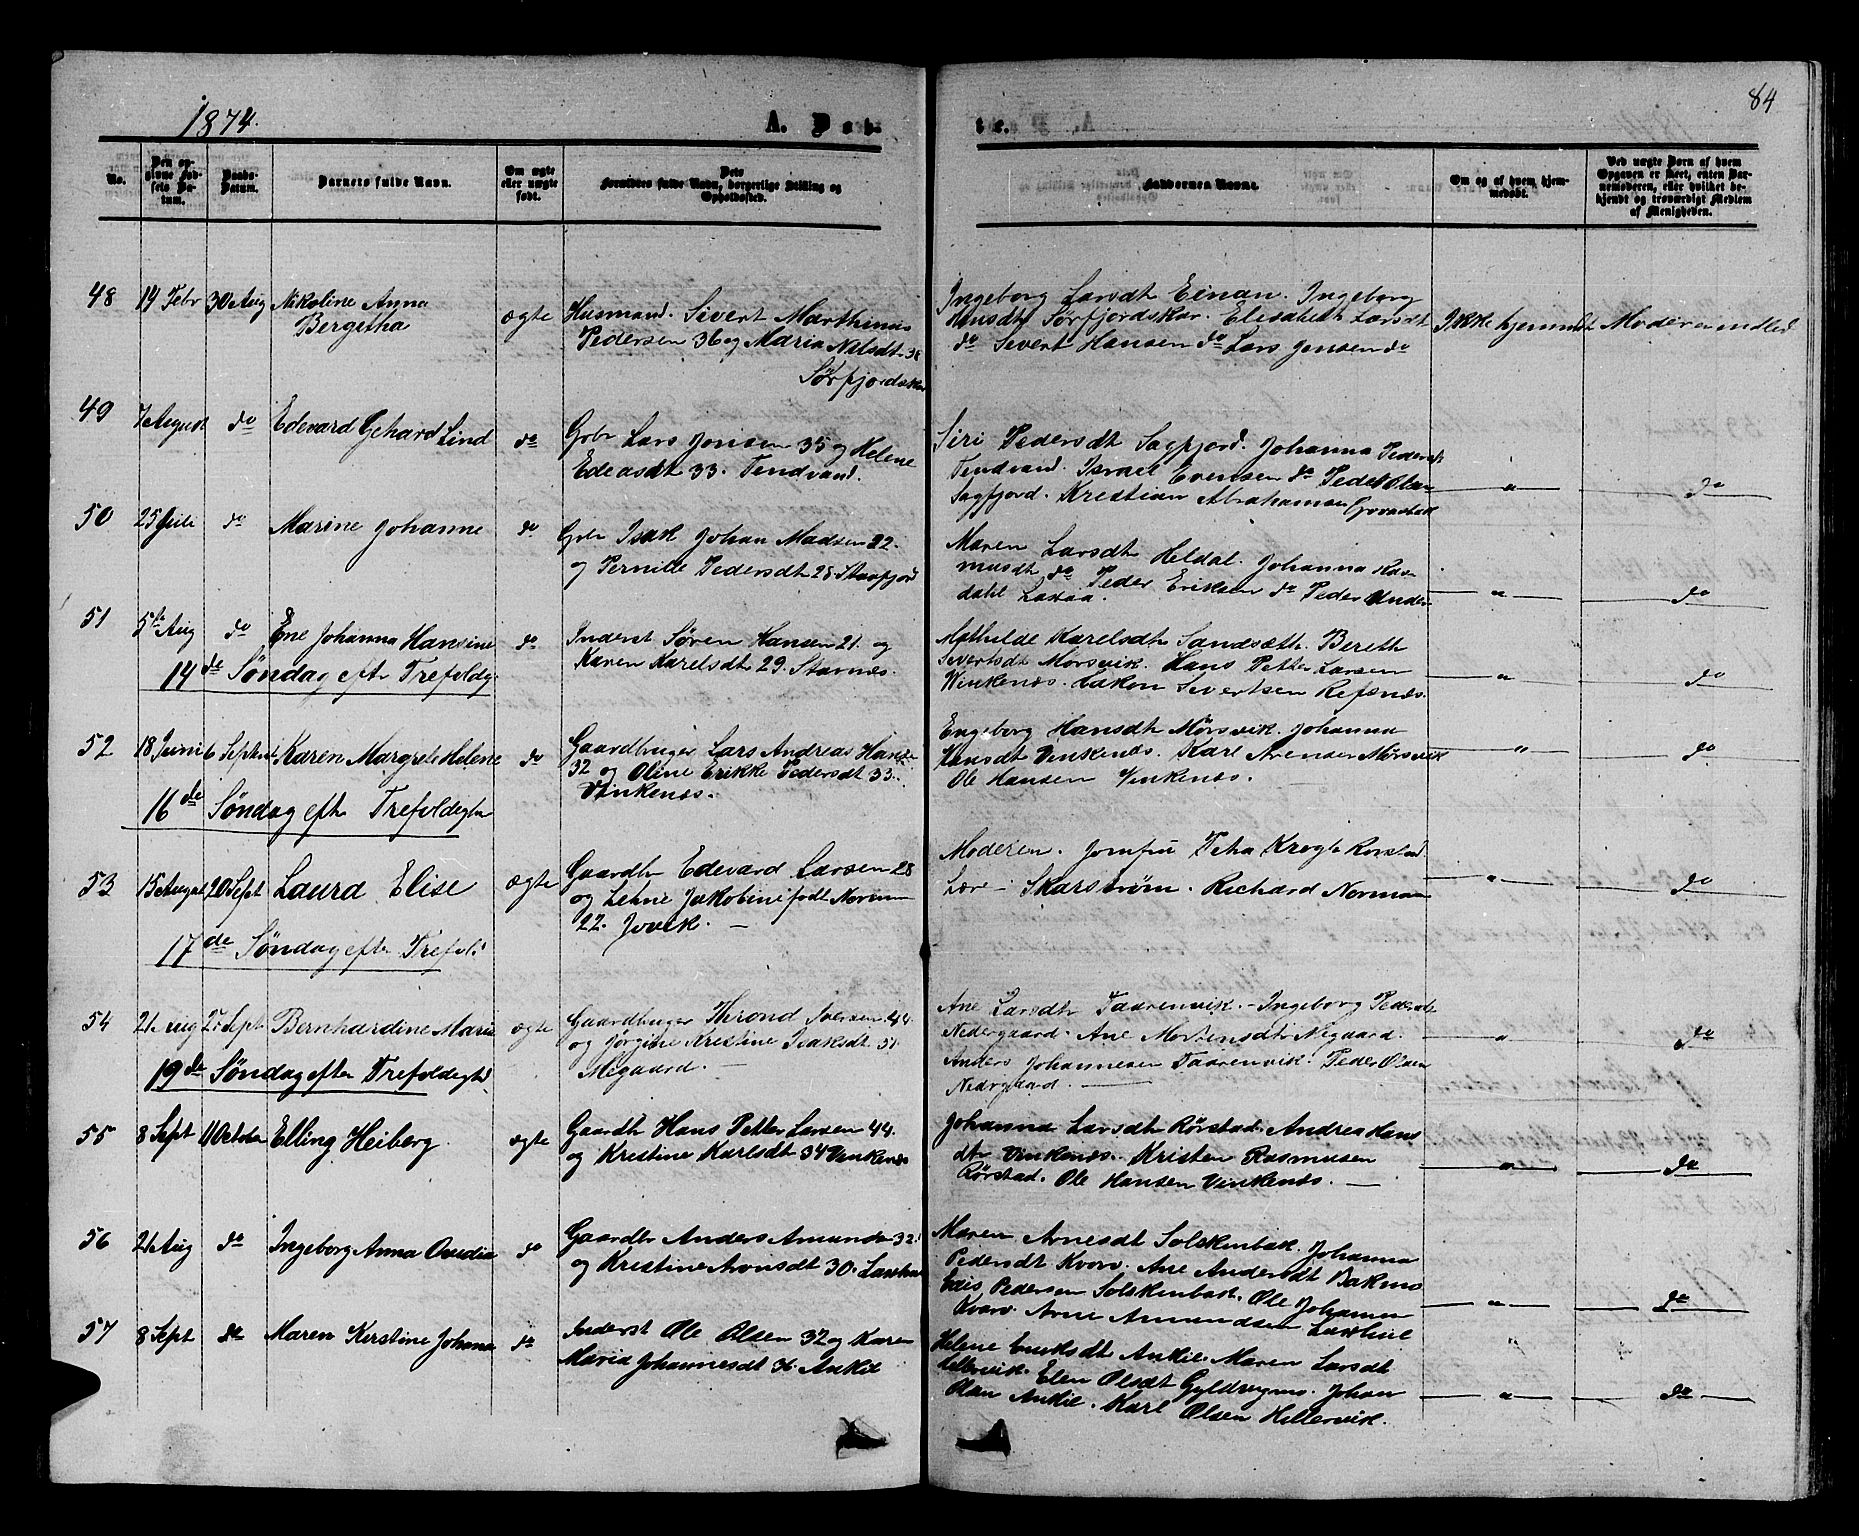 1874.
A. Døb-
te.
84
No.
Den op-
givne Fød-
sels Da-
tum.
Daabs-
Datum.
Barnets fulde Navn.
Om ægte
eller uægte
født.
Dets
Forældres fulde Navn, borgerlige Stilling og
Opholdssted.
Faddernes Navne.
Om og af hvem hjem-
medøbt.
Ved uægte Børn af hvem
Opgaven er skeet, enten Bar-
nemoderen, eller hvilket be-
kjendt og troværdigt Medlem
af Menigheden.
48 14 Febr 30 Aug Nikoline Anna
Bergetha
ægte
Husmand. Sivert Marthinus
Pedersen 36 og Maria Nilsdt 38
Sørfjordskar
Ingeborg Larsdt Einan. Ingeborg
Hansdt Sørfjordskar. Elisabeth Larsdt
do Sivert Hansen do Lars Jensen do
Ikke hjemdt
Moderen
49 7 August do Edevard Gehard Lind do
Gbr Lars Jonsen 35 og Helene
Edeasdt 33. Tendvand.
Siri Pedersdt Sagfjord. Johanna Pedersdt
Tendvand. Israel Evensen do Peder Olsen
Sagfjord. Kristian Abrahamsen
" do
50 25 Juli do Marine Johanne do
Gbr Isak Johan Madsen 22.
og Pernille Pedersdt 28
Maren Larsdt Heldal. Johanna Ras-
musdt do Peder Eriksen do Peder
dahl
" do
51 5te Aug do Ene Johanna Hansine do
Inderst Søren Hansen 21. og
Karen Karelsdt 29. Stavnes.
Mathilde Karelsdt Sandsæth. Bereth
Sivertsdt Mørsvik. Hans Petter Larsen
Vinkenes. Hakon Sivertsen Refsnes.
" do
14de Søndag eft Trefoldg.
52 18 Juni 6 Septbr Karen Margrete Helene do
Gaardbruger Lars Andreas Hansen
32 og Oline Erikke Pedersdt 33.
Vinkenes.
Engeborg Hansdt Mørsvik. Johanna
Hansdt Vinkenes. Karl Arensen Mørsvik
Ole Hansen Vinkenes.
" do
16de Søndag eftr Trefoldigh
53 15 August 20 Sept Laura Elise ægte
Gaardbr Edevard Larsen 28
og Lehne Jakobine født Norman
22. Jovik. —
Moderen. Jomfru Petra Krogh Rørstad
Lær – Skarstrøm. Richard Norman
" do
17de Søndag eftr Trefol:
54 21 Aug 27 Sept Bernhardine Marie ægte
Gaardbruger Thrond Iversen 44.
og Jørgine Kristine Isaksdt 31.
Megaard. —
Ane Larsdt Taarenvik. – Ingeborg Pedersdt
Nedergaard. Ane Mortensdt Megaard.
Anders Johannesen Taarenvik. Peder Olsen
Nedrgaard. —
" do
19de Søndag efter Trefoldigh
55 8 Sept 11 October Elling Heiberg. ægte
Gaardb Hans Petter Larsen 44.
og Kristine Karlsdt 34 Vinkenes
Johanna Larsdt Rørstad. Andrea Hans
dtr Vinkenes. Kristen Rasmusen
Rørstad. Ole Hansen Vinkenes. —
" do
56 21 Aug do Ingeborg Anna Ovedia do
Gaardbr Anders Amundsen 32
og Kristine Arnsdt 30.
Maren Arnesdt Solskinbak. Johanna
Pedersdt Kvarv. Ane Andersdt Bakmo
Edis Pedersen Solskenbak. Ole Johansen
Kvarv. Arne Amundsen
" do
57 8 Sept do Maren Kerstine Johana do
Inderst Ole Olsen 32 og Karen
Maria Johannesdt 36. Ankil
Helene Eriksdt Ankil. Maren Larsdt
Hellervik. Elen Olsdt Gyldvugnes. Johan
Olsen Ankil. Karl Olsen Hellervik.
" do